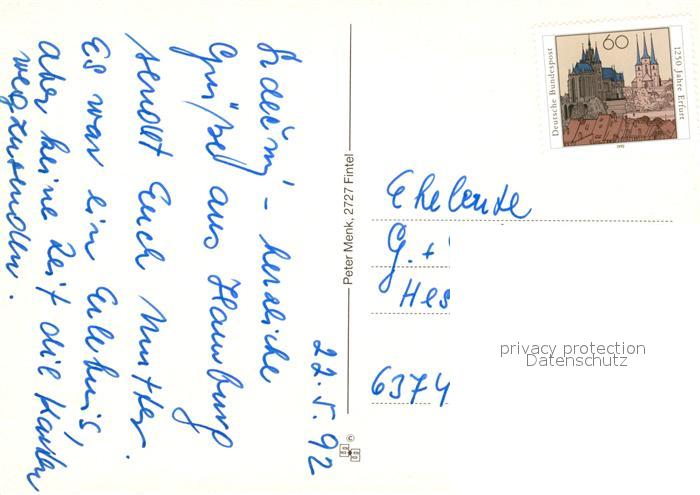 22.5.92
Srdečný - herzliche
Grüße aus Hamburg
sendet Euch Mutter.
Es war ein Erlebnis,
aber keine Zeit die Karten
wegzusenden.
Peter Menk, 2727 Fintel
©
60
Deutsche Bundespost
1250 Jahre Erfurt
1992
Eheleute
G. +
Hes
6374
privacy protection
Datenschutz